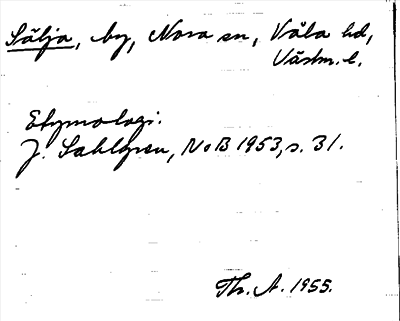 Sälja, by, Nora sn, Våla hd,
Västm. l.
Etymologi.
J. Sahlgren, NoB 1953, s. 31.
Th. A. 1955.